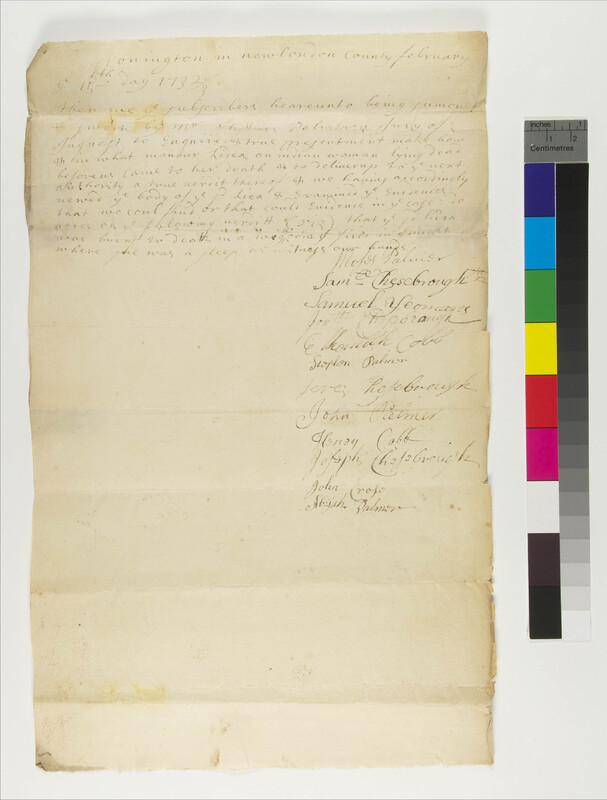 Stonington in newLondon County february
ye 15th day 1732/3
then we ye subscribers hereunto being sumoned
& sworn by Mr Palmer a Jury of
Inquest to Enquire & true presentment make how
& in what maner Kesea an indian woman lying dead
before us came to her death & to deliver up to ye next
athority a true verdit thereof & we having accordingly
vewed ye body of ye sd Kesea & Examined ye Evidences
that we could find or that could Evidence in ye case do
agree on ye following verdit (viz) that ye sd Kesea
was burnt to death in a wigwam by fire in ye night
where she was a sleep as witness our hands
Moses Palmer
Samll Chesebrough
Samuel Yeomans
Jonth Chesbrough
Elkanah Cobb
Stephen Palmer
Jerez hesebrough
John Palmer
Henry Cobb
Joseph Chesebrough
John Cross
Joseph Palmer
inches 1
1 2
Centimetres